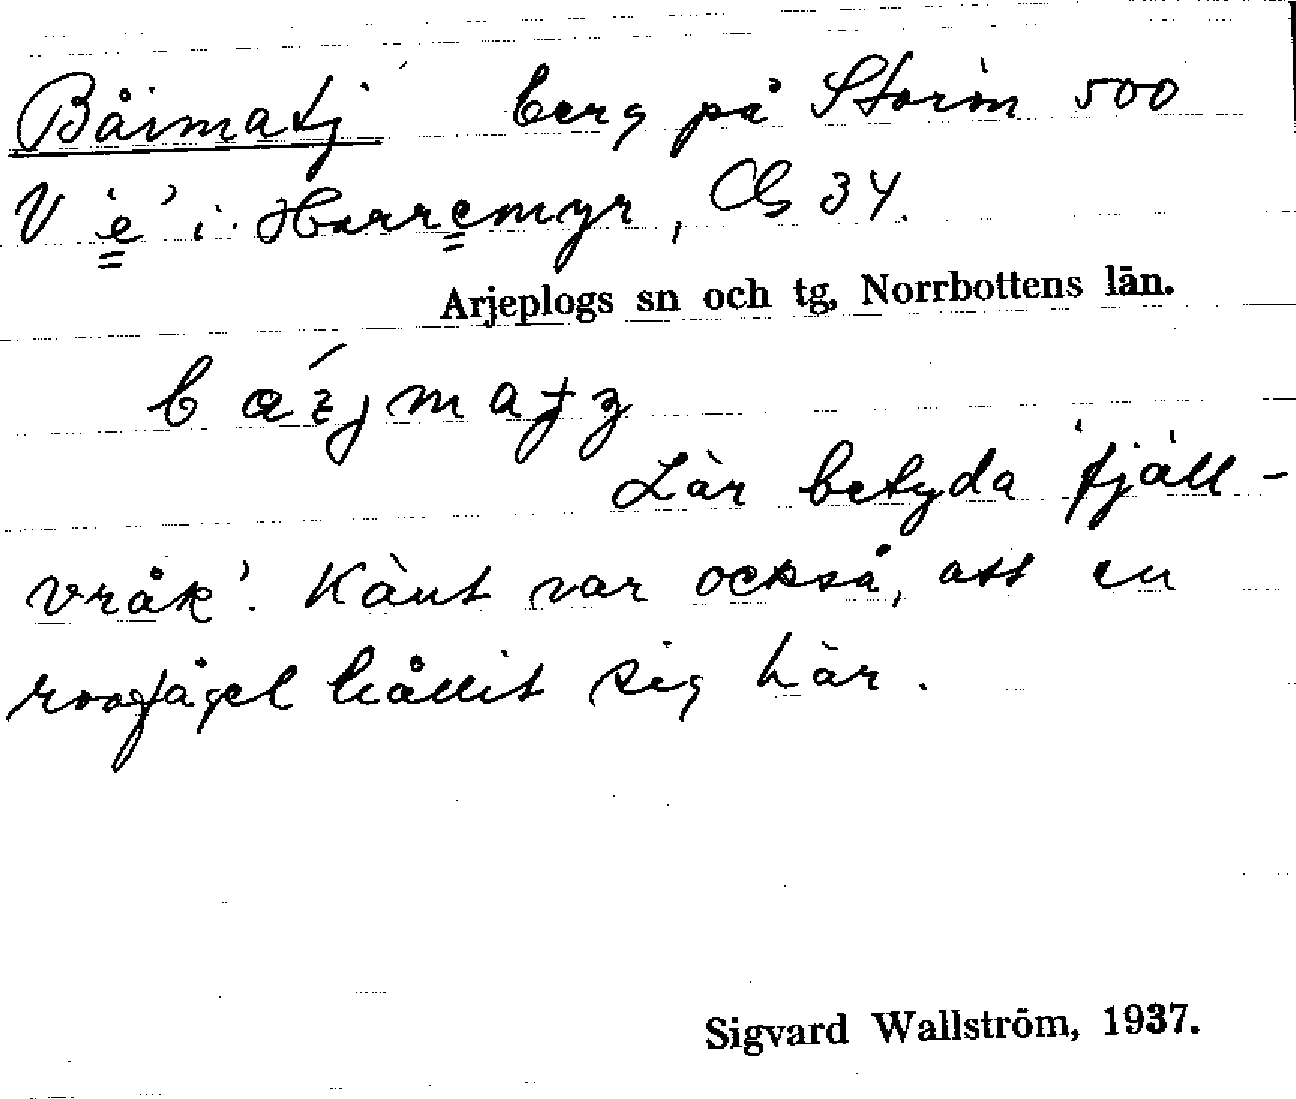 Båimatj berg på Storön 500
V 'e' i Harremyr, Cb 34.
Arjeplogs sn och tg, Norrbottens län.
Lär betyda 'fjäll-
vråk'. Känt var också, att en
rovfågel hållit sig här.
Sigvard Wallström, 1937.